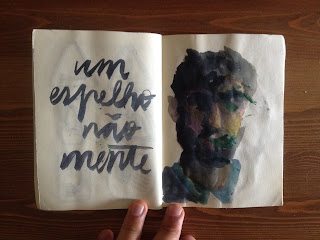 um
espelho
não
mente